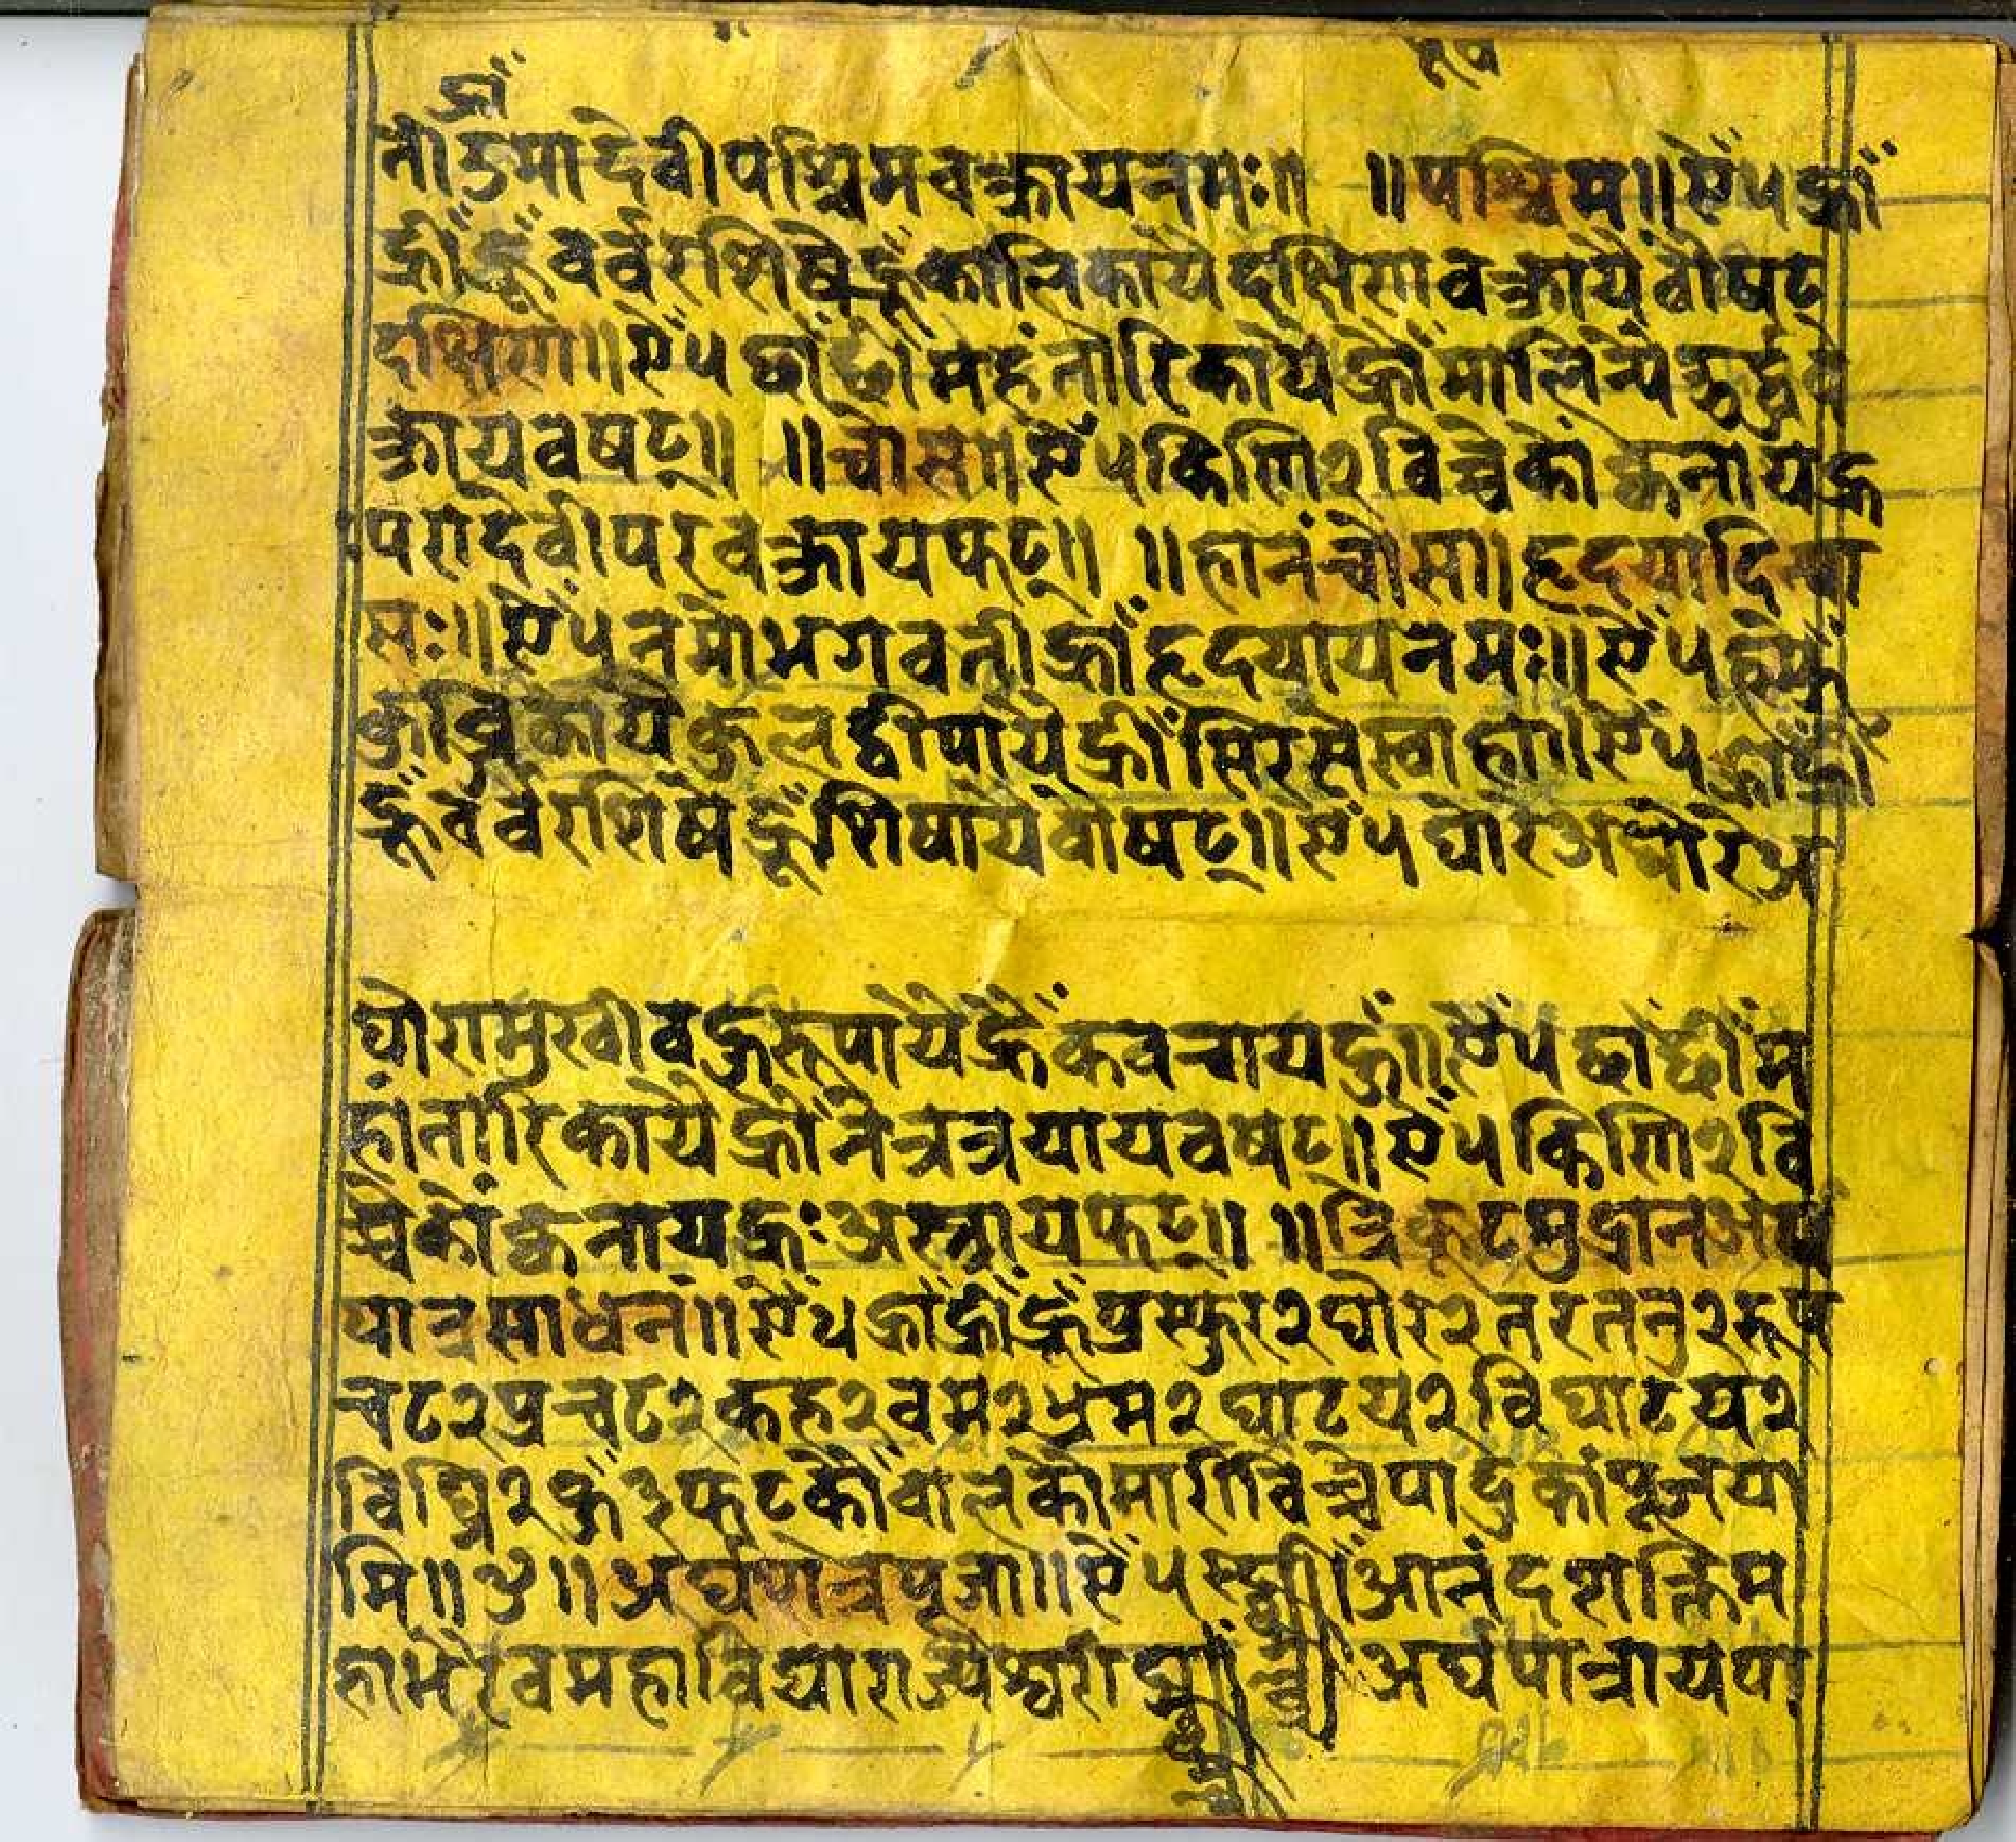 ह्रां
ती उमादेवीपश्चिमवक्त्रायनमः॥ ॥पश्चिम॥ ऐँ ५ ह्रां
ह्रीं ह्रूं वर्वरशिषे ह्रूं कालिकायै दक्षिणवक्त्रायै वौषट्
दक्षिण॥ ऐँ ५ छां छीं महंतारिकायै ह्रौं मालिन्यै उर्द्धव
क्त्रायवषट्॥ ॥चोस॥ ऐँ ५ किणि २ विच्चे कों कनाय ह्रः
परादेवीपरवक्त्रायफट्॥ ॥हानं चोस॥ हृदयादिन्या
सः॥ ऐँ ५ नमो भगवती ह्रां हृदयायनमः॥ ऐँ ५
कुब्जिकायै कुलद्वीपायै ह्रीं सिरसे स्वाहा॥ ऐँ ५ ह्रां ह्रीं
ह्रूं वर्वरशिषे ह्रूं शिषायै वौषट्॥ ऐँ ५ घोरे अघोरे अ
घोरामुखी वहुरूपायै ह्रैं कवचाय हूं॥ ऐँ ५ छां छीं म
हंतारिकायै ह्रौं नेत्रत्रयायवषट्॥ ऐँ ५ किणि २ वि
च्चे कों कनाय ह्रः अस्त्रायफट्॥ ॥त्रिकूटमुद्रान अर्घ
पात्रसाधन॥ ऐँ ५ ह्रां ह्रीं ह्रूं प्रस्फुर २ घोर २ तरतनु २ रूप
चट २ प्रचट २ कह २ वम २ भ्रम २ घाटय २ विघाटय २
विघ्नि २ हूं ३ फट् कौं वालकौमारी विच्चे पादुकां पूजया
मि॥ ४॥ अर्घपात्रपूजा॥ ऐँ ५ आनंदशक्तिम
हाभैरवमहाविद्याराज्येश्वरी अर्घपात्रायपा